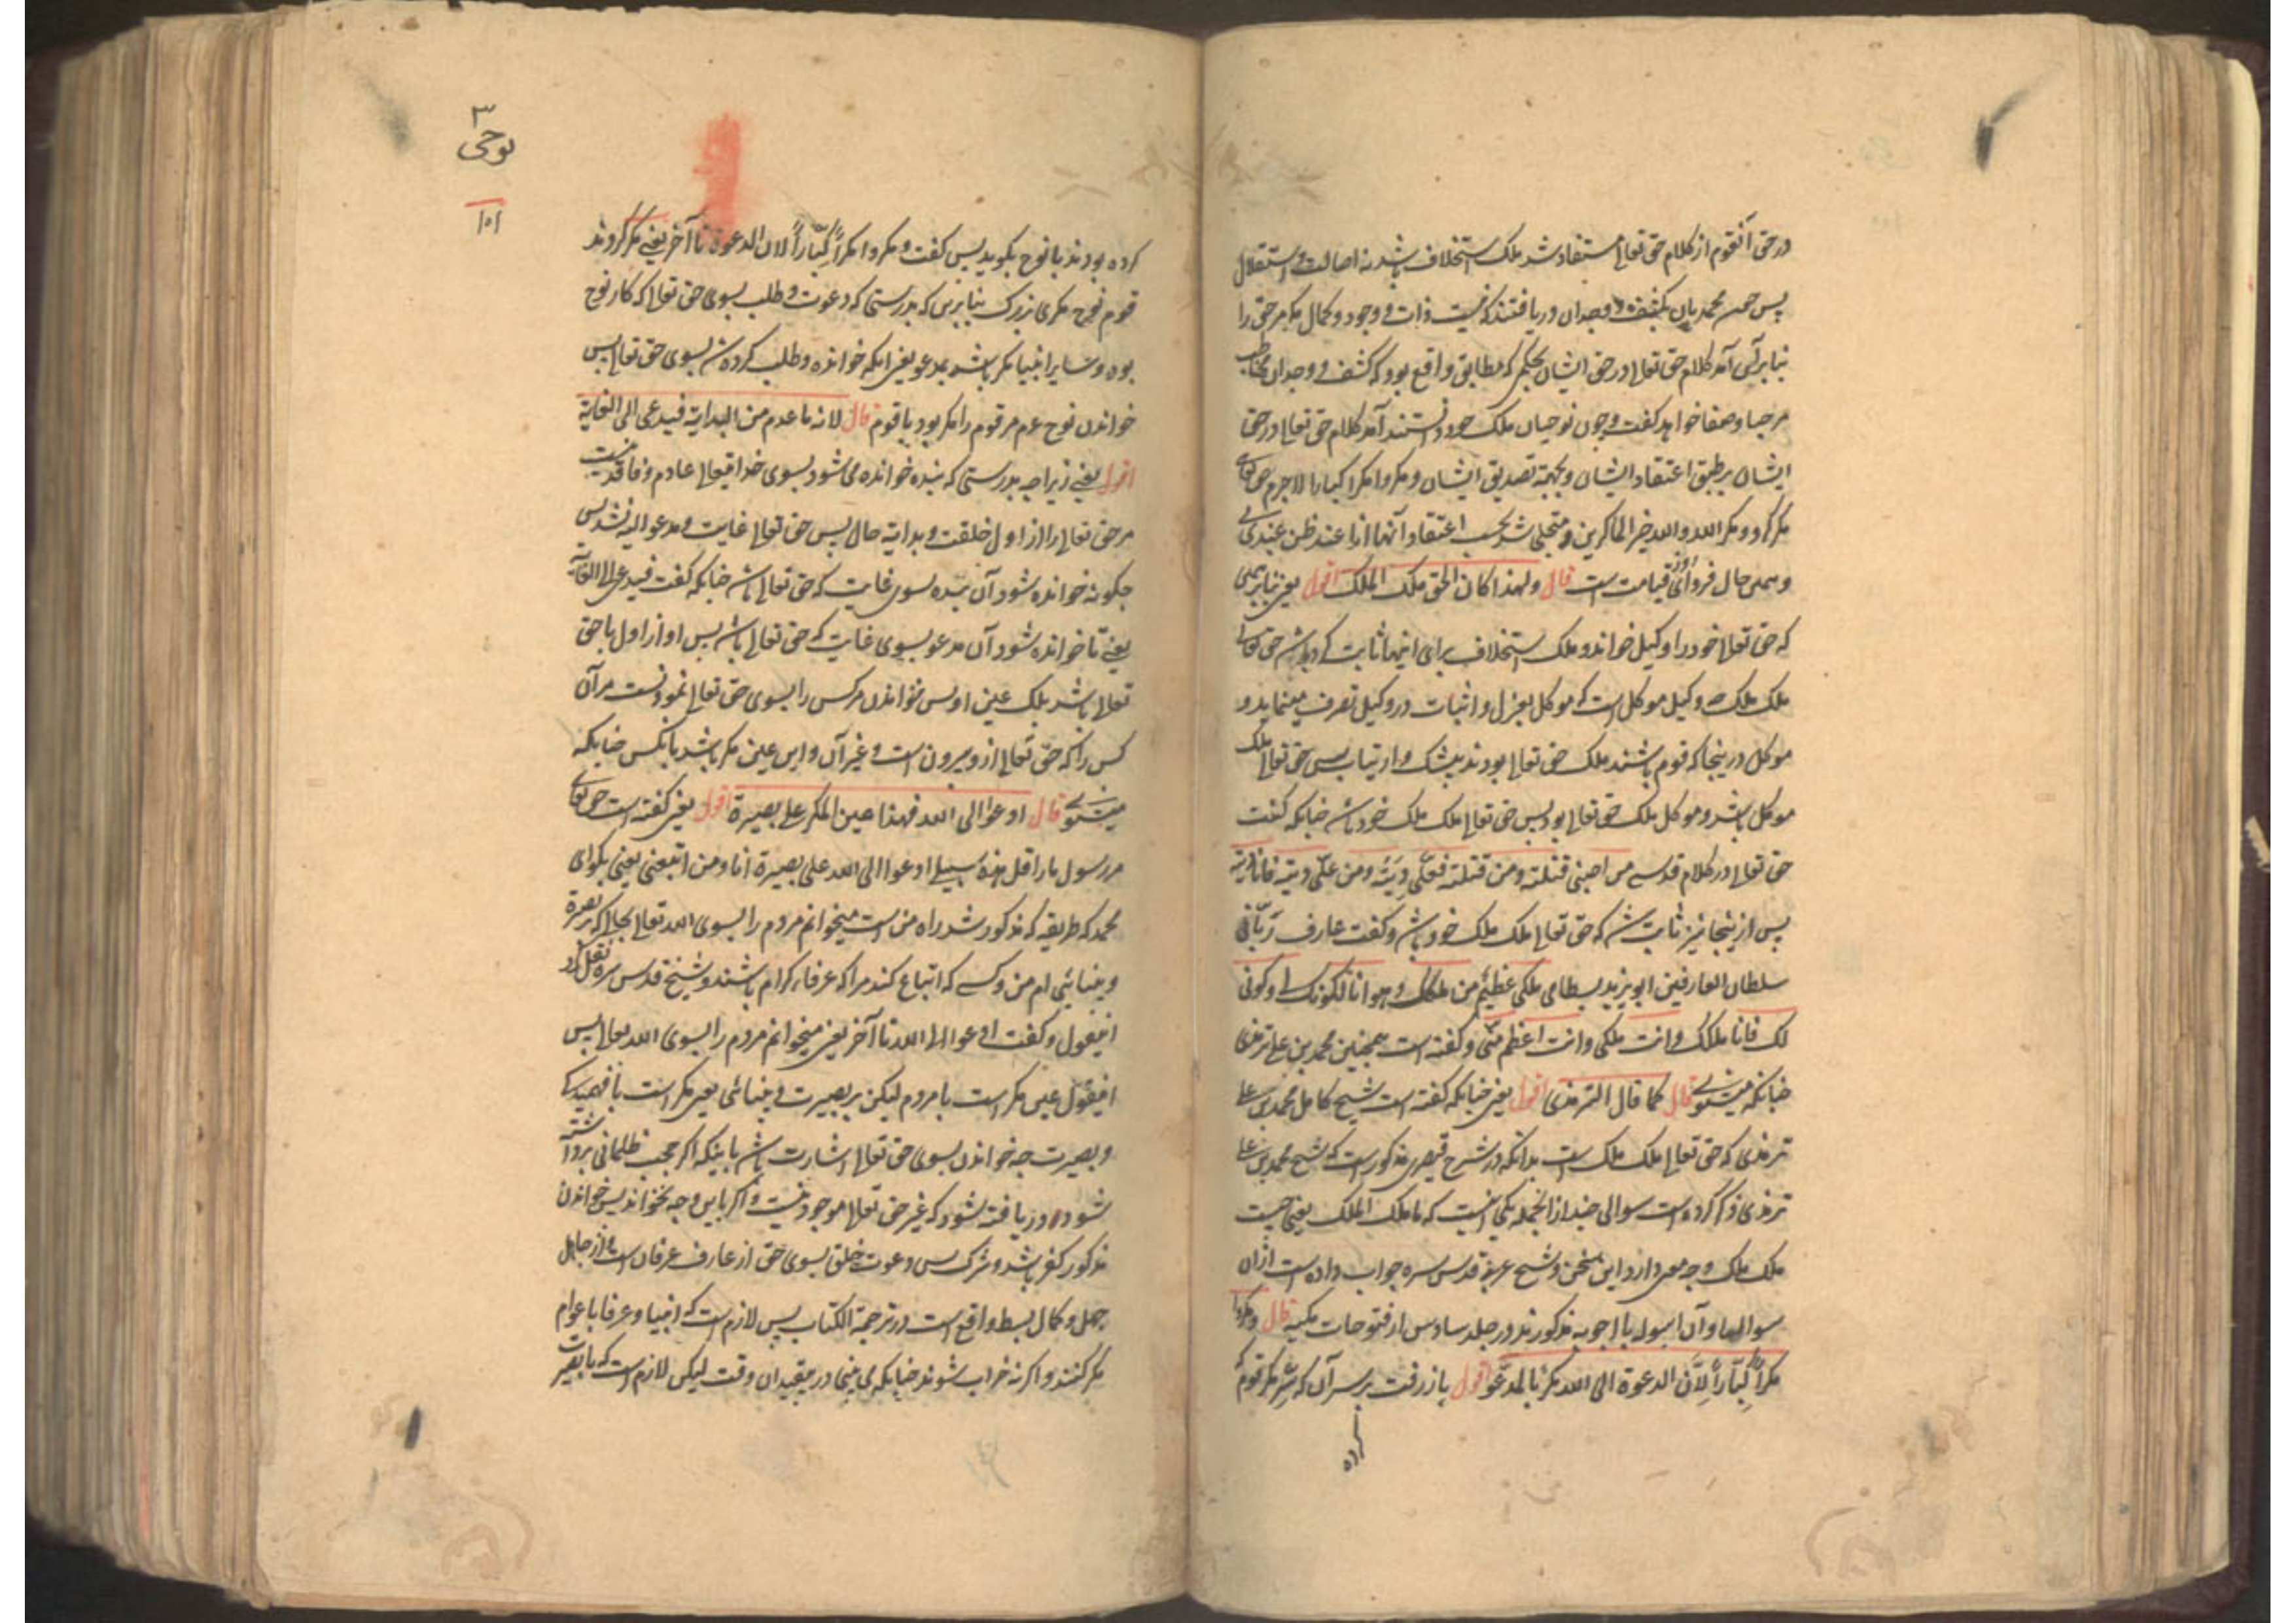 در حق آنقوم از کلام حق تعالی مستفاد شد ملک استخلاف باشد نه اصالت و استقلال
پس چون محمدیان بکشف و وجدان دریافتند که نیست ذات و وجود و کمال مگر مر حق را
بنابر آن آمد کلام حق تعالی در حق ایشان بحکمی که مطابق واقع بود که کشف و وجدان
مرحبا و صفا خواهد گفت و چون نوحیان ملک خود دانستند آمد کلام حق تعالی در حق
ایشان بر طبق اعتقاد ایشان و بجهة تصدیق ایشان و مکروا مکرا کبارا لاجرم حق تعالی
مکر کرد و مکر الله والله خیر الماکرین و متجلی شد بحسب اعتقاد آنها انا عند ظن عبدی بی
و همین حال فردای روز قیامت است قال ولهذا کان الحق ملک الملک اقول یعنی بنابر همین
که حق تعالی خود را وکیل خواند و ملک استخلاف برای اینها ثابت کرد باشد حق تعالی
ملک ملک چه وکیل موکل است که موکل بعزل و اثبات در وکیل تصرف مینماید و
موکل در ینجا که قوم باشند ملک حق تعالی بودند بیشک و ارتیاب پس حق تعالی ملک
موکل باشد و موکل ملک حق تعالی بود پس حق تعالی ملک ملک خود باشد چنانکه گفت
حق تعالی در کلام قدسی من احبنی قتلته و من قتلته فعلی دیته و من علی دیته فانا دیته
پس از ینجا نیز ثابت شد که حق تعالی ملک ملک خود باشد و گفت عارف ربانی
سلطان العارفین ابو یزید بسطامی ملکی عظیم من ملکک و هو انا لکونک لی و کونی
لک فانا ملکک وانت ملکی وانت اعظم منی و گفته است همچنین محمد بن علی ترمذی
چنانکه میشنوی قال کما قال الترمذی اقول یعنی چنانکه گفته است شیخ کامل محمد بن علی
ترمذی که حق تعالی ملک ملک است بدانکه در شرح قیصری مذکور است که شیخ محمد بن علی
ترمذی ذکر کرده است سوالی چند از انجمله یکی اینست که ما ملک الملک یعنی چیست
ملک ملک و چه معنی دارد این سخن و شیخ عربی قدس سره جواب داده است از ان
سوالها و آن اسوله با اجوبه مذکورند در جلد سادس از فتوحات مکیه قال و مکروا
مکرا کبارا لان الدعوة الی الله مکر بالمدعو اقول باز رفت بر سر آن که مکر قوم
کرده
۳
نوحی
۱۵۱
کرده بودند با نوح بگوید پس گفت و مکروا مکرا کبارا لان الدعوة تا آخر یعنی مکر کردند
قوم نوح مکری بزرگ بنابرین که بدرستی که دعوت و طلب بسوی حق تعالی که کار نوح
بود و سایر انبیا مکر باشد بمدعو یعنی بانکه خوانده و طلب کرده شد بسوی حق تعالی پس
خواندن نوح عم مر قوم را مکر بود با قوم قال لانه ما عدم من البدایة فیدعی الی الغایة
اقول یعنی زیرا چه بدرستی که بنده خوانده می شود بسوی خدا تعالی عادم و فاقد نیست
مر حق تعالی را از اول خلقت و بدایة حال پس حق تعالی غایت و مدعو الیه نشد پس
چگونه خوانده شود آن بنده بسوی غایت که حق تعالی باشد چنانکه گفت فیدعی الی الغایة
یعنی تا خوانده شود آن مدعو بسوی غایت که حق تعالی باشد پس او از اول با حق
تعالی باشد بلک عین او پس خواندن مر کس را بسوی حق تعالی نمودنست مر آن
کس را که حق تعالی ازو بیرون است و غیر آن و این عین مکر باشد بانکس چنانکه
میشنوی قال ادعوا الی الله فهذا عین المکر علی بصیرة اقول یعنی گفته است حق تعالی
مر رسول ما را قل هذه سبیلی ادعوا الی الله علی بصیرة انا و من اتبعنی یعنی بگو ای
محمد که طریقه که مذکور شد راه من است میخوانم مردم را بسوی الله تعالی بحالی که بر بصیرة
و بینائی ام من و کسی که اتباع کند مرا که عرفاء کرام باشند و شیخ قدس سره نقل کرد
اینقول و گفت ادعوا الی الله تا آخر یعنی میخوانم مردم را بسوی الله تعالی پس
اینقول عین مکر است با مردم لیکن بر بصیرت و بینائی یعنی مکر است با فهمیدگی
و بصیرت چه خواندن بسوی حق تعالی اشارت باشد باینکه اگر حجب ظلمانی برداشته
شود دریافته شود که غیر حق تعالی موجود نیست و اگر باین وجه نخواند پس خواندن
مذکور کفر باشد و شرک پس دعوت خلق بسوی حق از عارف عرفان است و از جاهل
جهل و کمال بسط واقع است در ترجمة الکتاب پس لازم است که انبیا و عرفا با عوام
مکر کنند و اگر نه خراب شوند چنانکه می بینی در مقیدان وقت لیکن لازم است که با بصیرت